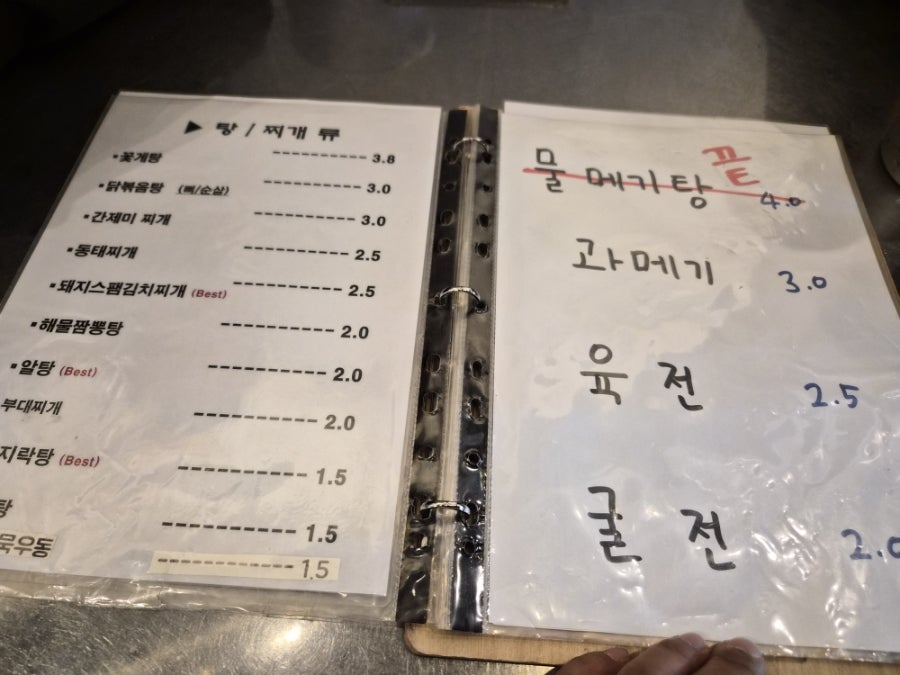 ▶ 탕 / 찌개 류
▪꽃게탕 ---------- 3.8
▪닭볶음탕 (뼈/순살) ---------- 3.0
▪간제미 찌개 ---------- 3.0
▪동태찌개 ---------- 2.5
▪돼지스팸김치찌개 (Best) ---------- 2.5
▪해물짬뽕탕 ---------- 2.0
▪알탕 (Best) ---------- 2.0
부대찌개 ---------- 2.0
지락탕 (Best) ---------- 1.5
탕 ---------- 1.5
묵우동 ---------- 1.5
물메기탕 끝 4.0
과메기 3.0
육전 2.5
굴전 2.0